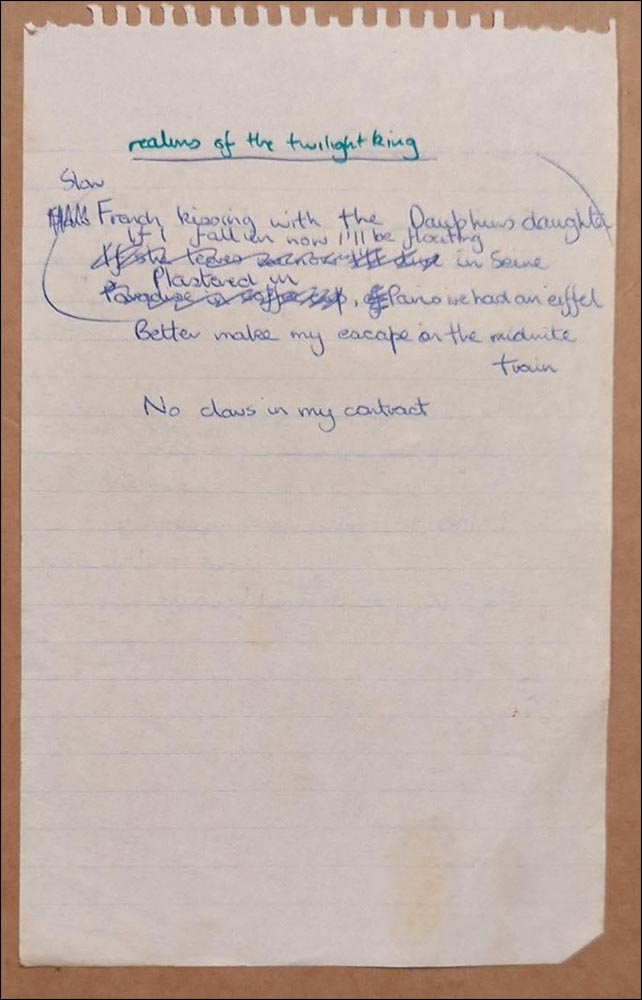 realms of the twilight king
Slow
French kissing with the Dauphins daughter
If i fall in now i'll be floating
in Seine
Plastered in
Paris we had an eiffel
Better make my escape on the midnite
train
No claws in my contract